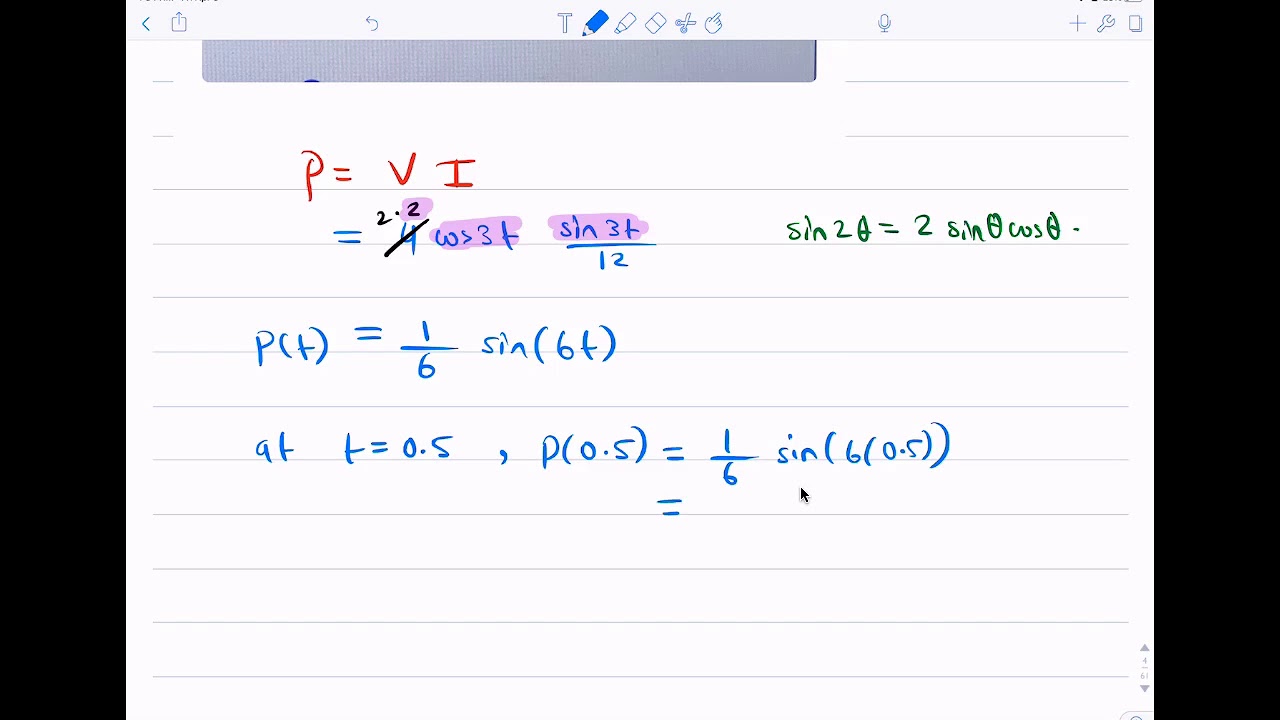 P = V I
= 4 2·2 cos3t sin 3t / 12
sin2θ = 2 sinθ cosθ.
P(t) = 1/6 sin(6t)
at t = 0.5 , P(0.5) = 1/6 sin(6(0.5))
=
T
4
61